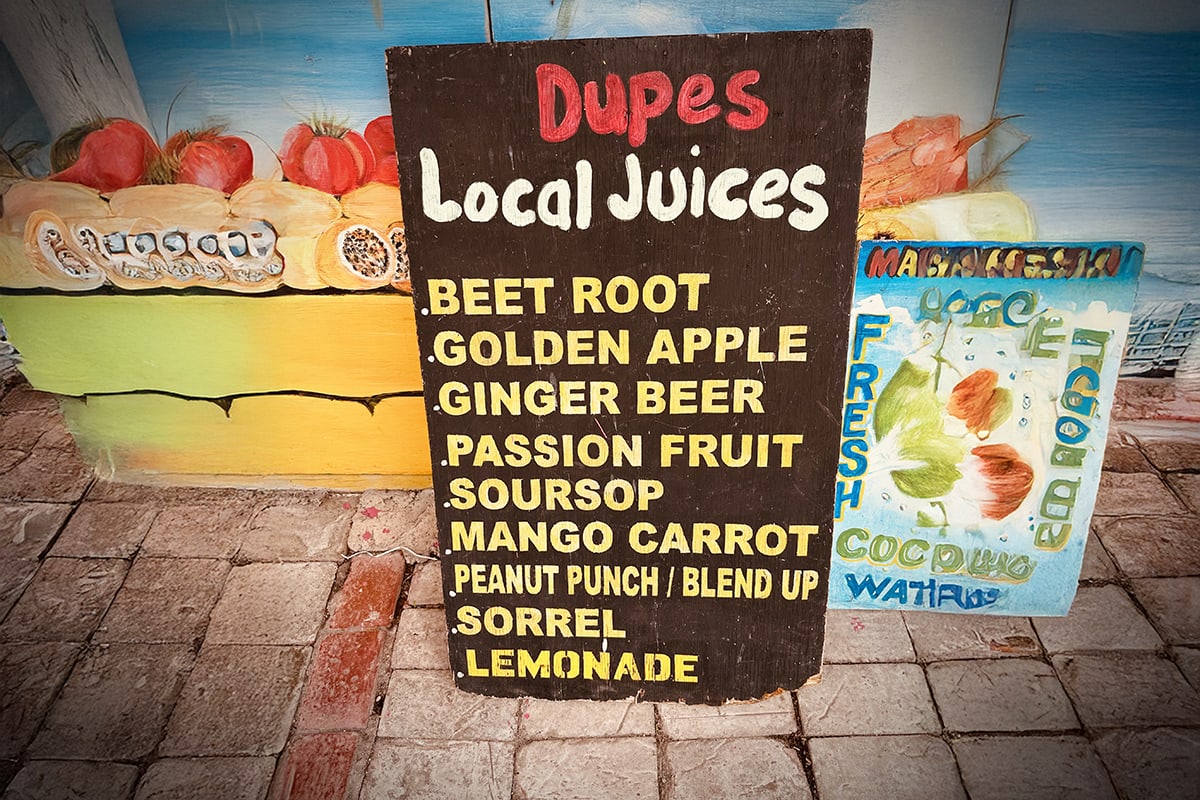 Dupes
Local Juices
BEET ROOT
GOLDEN APPLE
GINGER BEER
PASSION FRUIT
SOURSOP
MANGO CARROT
PEANUT PUNCH / BLEND UP
SORREL
LEMONADE
FRESH